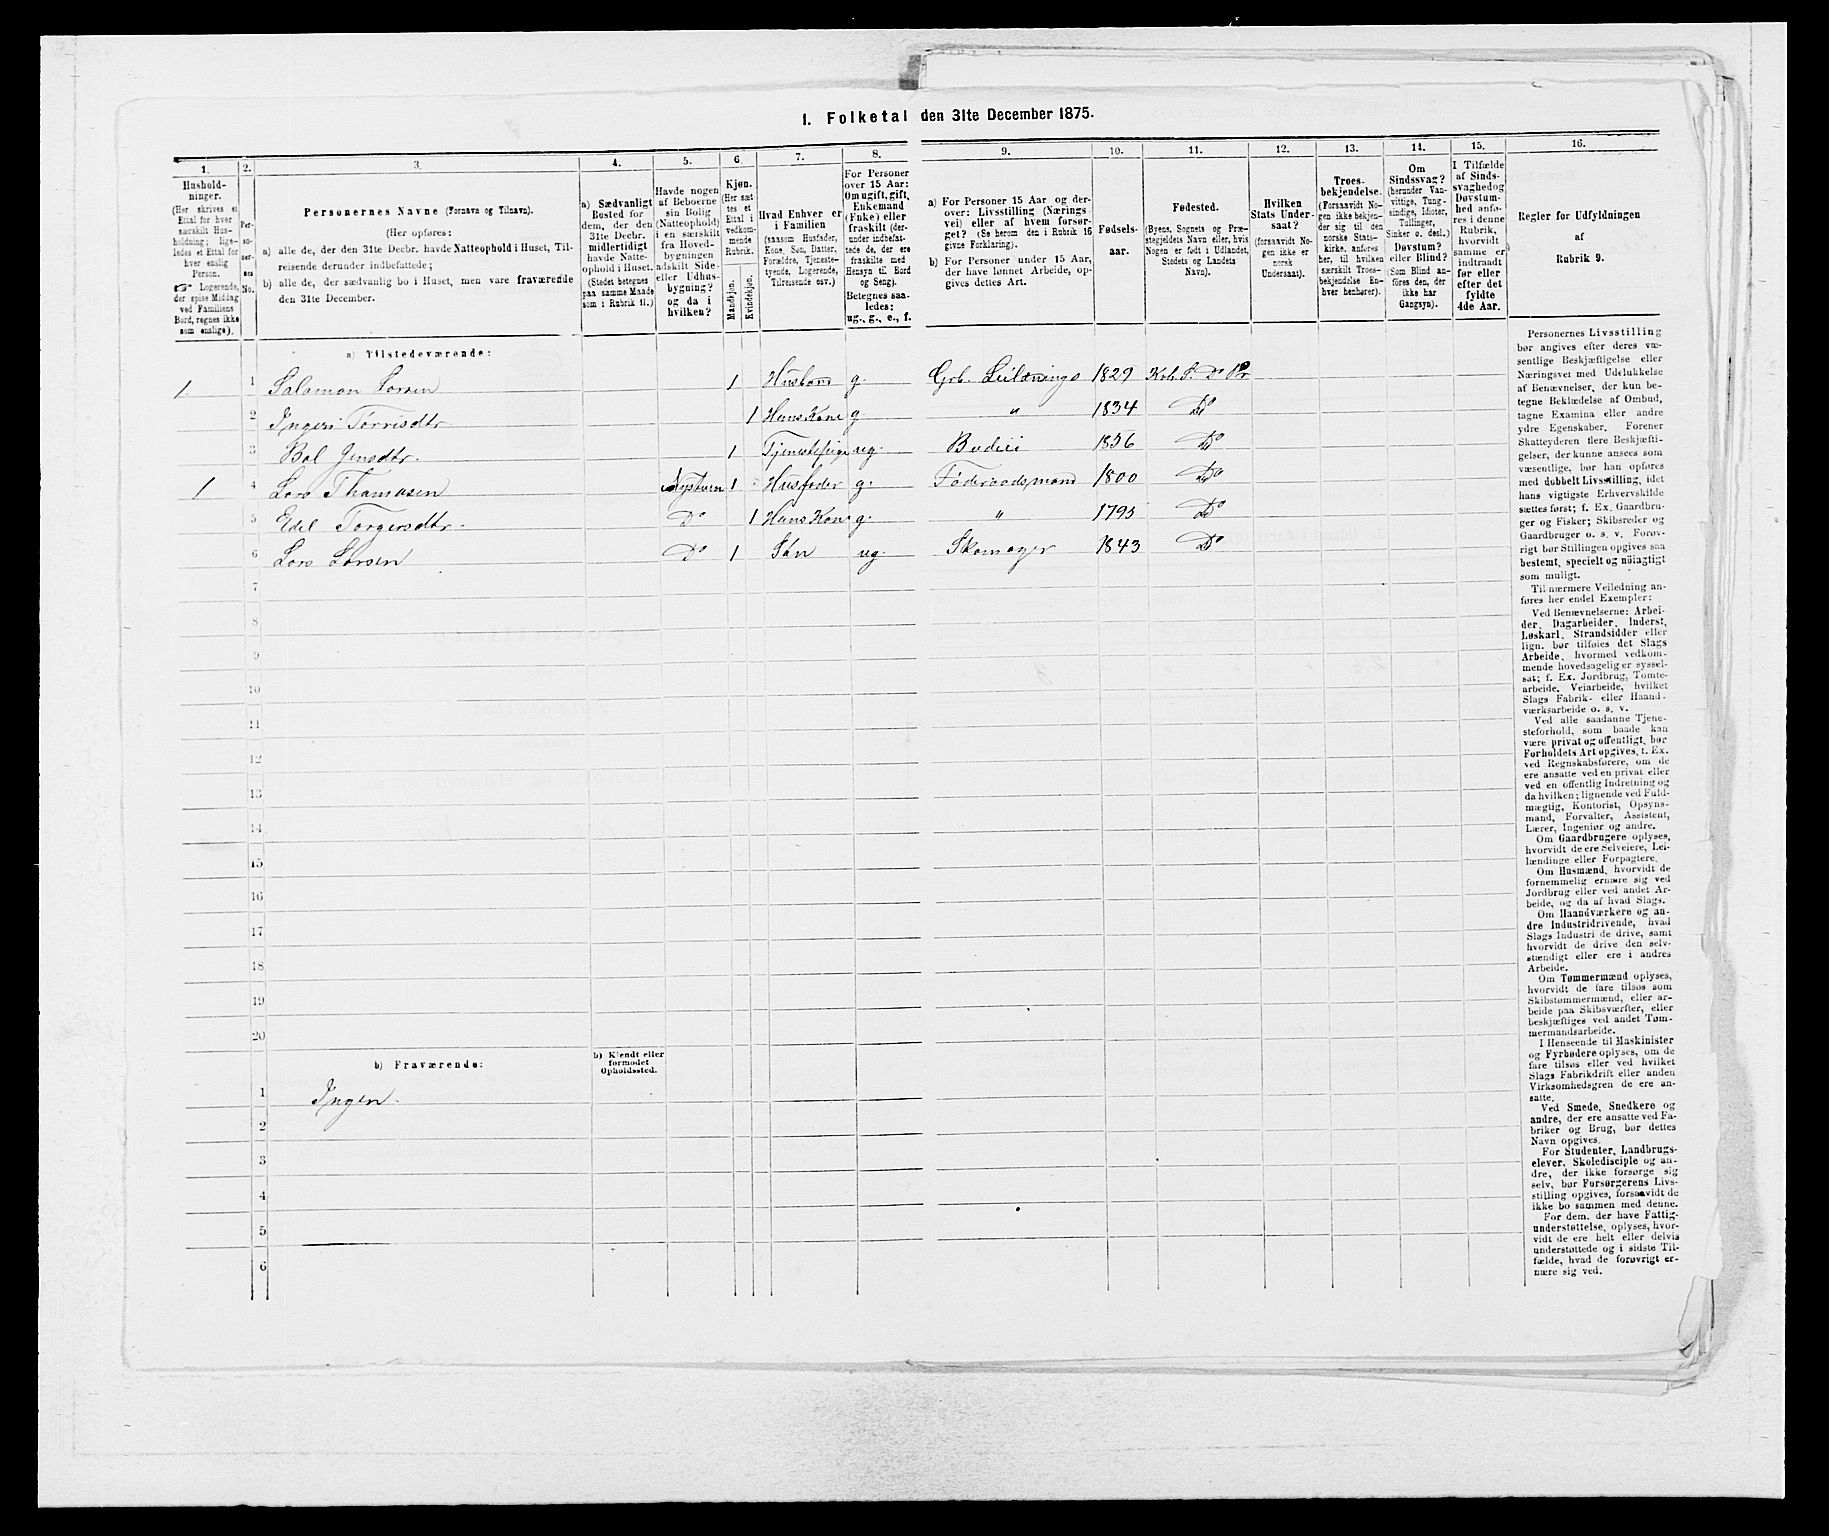 1. Folketal den 31te December 1875.
1. 2. 3. 4. 5. 6. 7. 8. 9. 10. 11. 12. 13. 14. 15. 16.
Hushold-
ninger.
(Her skrives et
Ettal for hver
særskilt Hus-
holdning; lige-
ledes et Ettal for
hver enslig
Person.
☞ Logerende,
der spise Middag
ved Familiens
Bord, regnes ikke
som enslige).
Per-
so-
ner-
nes
No.
Personernes Navne (Fornavn og Tilnavn).
(Her opføres:
a) alle de, der den 31te Decbr. havde Natteophold i Huset, Til-
reisende derunder indbefattede;
b) alle de, der sædvanlig bo i Huset, men vare fraværende
den 31te December.
a) Sædvanligt
Bosted for
dem, der den
31te Decbr.
midlertidigt
havde Natte-
ophold i Huset.
(Stedet betegnes
paa samme Maade
som i Rubrik 11.)
Havde nogen
af Beboerne
sin Bolig
(Natteophold)
i en særskilt
fra Hoved-
bygningen
adskilt Side-
eller Udhus-
bygning?
og da i
hvilken?
Kjøn.
(Her sæt-
tes et
Ettal i
vedkom-
mende
Rubrik.
Mandkjøn.
Kvindekjøn.
Hvad Enhver er
i Familien
(saasom Husfader,
Kone, Søn, Datter,
Forældre, Tjeneste-
tyende, Logerende,
Tilreisende osv.)
For Personer
over 15 Aar:
Om ugift, gift,
Enkemand
(Enke) eller
fraskilt (der-
under indbefat-
tede de, der ere
fraskilte med
Hensyn til Bord
og Seng).
Betegnes saa-
ledes:
ug., g., e., f.
a) For Personer 15 Aar og der-
over: Livsstilling (Nærings
vei) eller af hvem forsør-
get? (Se herom den i Rubrik 16
givne Forklaring).
b) For Personer under 15 Aar,
der have lønnet Arbeide, op-
gives dettes Art.
Fødsels-
aar.
Fødested.
(Byens, Sognets og Præ-
stegjeldets Navn eller, hvis
Nogen er født i Udlandet,
Stedets og Landets
Navn).
Hvilken
Stats Under-
saat?
(forsaavidt No-
gen ikke er
norsk
Undersaat).
Troes-
bekjendelse.
(Forsaavidt No-
gen ikke bekjen-
der sig til den
norske Stats-
kirke, anføres
her, til hvilken
særskilt Troes-
bekjendelse En-
hver henhører).
Om
Sindssvag?
(herunder Van-
vittige, Tung-
sindige, Idioter,
Tullinger,
Sinker o. desl.)
Døvstum?
eller Blind?
(Som Blind an-
føres den, der
ikke har
Gangsyn).
I Tilfælde
af Sinds-
svaghed og
Døvstum-
hed anfø-
res i denne
Rubrik,
hvorvidt
samme er
indtraadt
før eller
efter det
fyldte
4de Aar.
Regler for Udfyldningen
af
Rubrik 9.
a) Tilstedeværende:
1. 1 Salamon Larsen 1 Husbond g. Grb. Leilænings 1829 Kob. S. Do Pr
2 Ingeri Tørrisdtr. 1 Hans Kone g. " 1834 Do
3 Bol Jensdtr. 1 Tjenestepige ug. Budeie 1856 Do
1 4 Lars Thamasen Nystuen 1 Husfader g. Føderaadsmand 1800 Do
5 Edel Torgersdtr. Do 1 Hans Kone g. " 1795 Do
6 Lars Larsen Do 1 Søn ug. Skomager 1843 Do
7
8
9
10
11
12
13
14
15
16
17
18
19
20
b) Fraværende:
b) Kjendt eller
formodet
Opholdssted.
1 Ingen.
2
3
4
5
6
Personernes Livsstilling
bør angives efter deres væ-
sentlige Beskjæftigelse eller
Næringsvei med Udelukkelse
af Benævnelser, der kun be-
tegne Beklædelse af Ombud,
tagne Examina eller andre
ydre Egenskaber. Forener
Skatteyderen flere Beskjæfti-
gelser, der kunne ansees som
væsentlige, bør han opføres
med dobbelt Livsstilling, idet
hans vigtigste Erhvervskilde
sættes først; f. Ex. Gaardbru-
ger og Fisker; Skibsreder og
Gaardbruger o. s. v. Forøv-
rigt bør Stillingen opgives saa
bestemt, specielt og nöiagtigt
som muligt.
Til nærmere Veiledning an-
føres her endel Exempler:
Ved Benævnelserne: Arbei-
der, Dagarbeider, Inderst,
Løskarl, Strandsidder eller
lign. bør tilføies det Slags
Arbeide, hvormed vedkom-
mende hovedsagelig er syssel-
sat; f. Ex. Jordbrug, Tomte-
arbeide, Veiarbeide, hvilket
Slags Fabrik- eller Haand-
værksarbeide o. s. v.
Ved alle saadanne Tjene-
steforhold, som baade kan
være privat og offentligt, bør
Forholdets Art opgives, f. Ex.
ved Regnskabsførere, om de
ere ansatte ved en privat eller
ved en offentlig Indretning og
da hvilken; lignende ved Fuld-
mægtig, Kontorist, Opsyns-
mand, Forvalter, Assistent,
Lærer, Ingeniør og andre.
Om Gaardbrugere oplyses,
hvorvidt de ere Selveiere, Lei-
lændinge eller Forpagtere.
Om Husmænd, hvorvidt de
fornemmelig ernære sig ved
Jordbrug eller ved andet Ar-
beide, og da af hvad Slags.
Om Haandværkere og an-
dre Industridrivende, hvad
Slags Industri de drive, samt
hvorvidt de drive den selv-
stændigt eller ere i andres
Arbeide.
Om Tømmermænd oplyses,
hvorvidt de fare tilsøs som
Skibstømmermænd, eller ar-
beide paa Skibsværfter, eller
beskjæftiges ved andet Tøm-
mermandsarbeide.
I Henseende til Maskinister
og Fyrbødere oplyses, om de
fare tilsøs eller ved hvilket
Slags Fabrikdrift eller anden
Virksomhedsgren de ere an-
satte.
Ved Smede, Snedkere og
andre, der ere ansatte ved Fa-
briker og Brug, bør dettes
Navn opgives.
For Studenter, Landbrugs-
elever, Skoledisciple og an-
dre, der ikke forsørge sig
selv, bør Forsørgerens Livs-
stilling opgives, forsaavidt de
ikke bo sammen med denne.
For dem, der have Fattig-
understøttelse, oplyses, hvor-
vidt de ere helt eller delvis
understøttede og i sidste Til-
fælde, hvad de forøvrigt er-
nære sig ved.